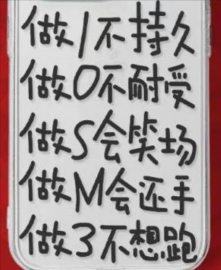 做1不持久
做0不耐受
做S会笑场
做M会还手
做3不想跑